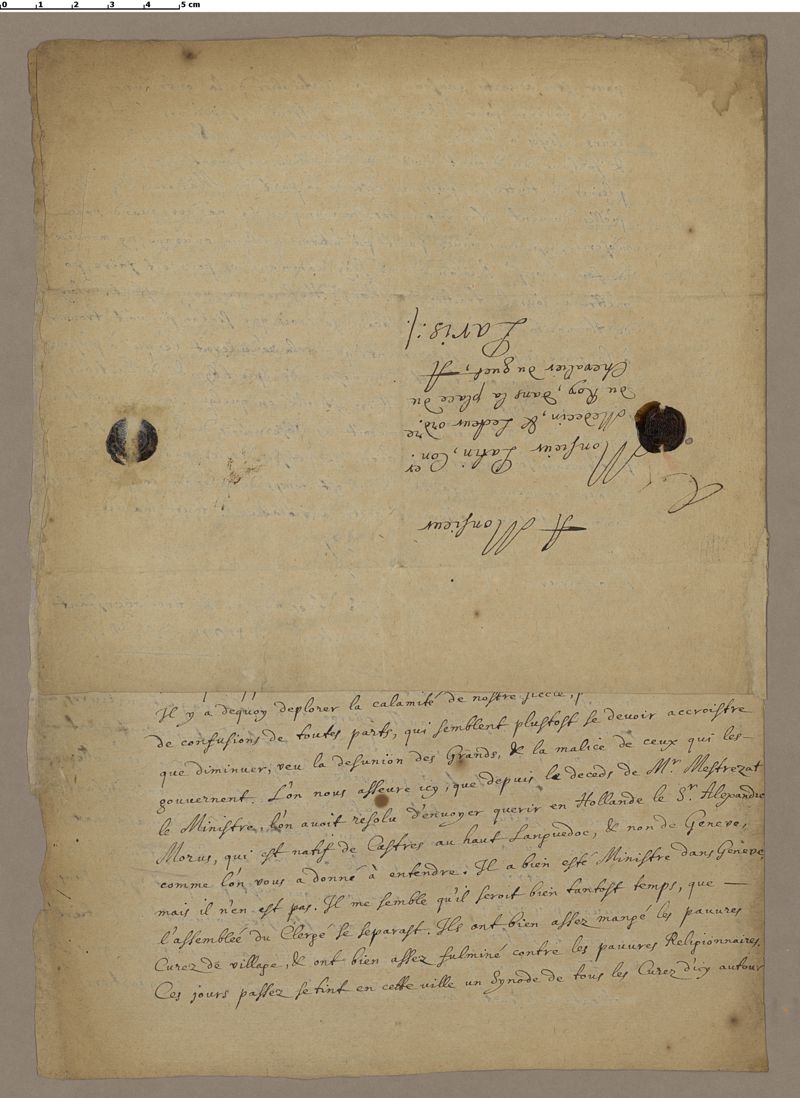 0 1 2 3 4 5 cm
A Monsieur
Monsieur Patin, Con.er
Medecin, & Lecteur ord.re
du Roy, dans la place du
Chevalier du guet, A
Paris:/.
Il y a dequoy deplorer la calamité de nostre siecle,
de confusions de toutes parts, qui semblent plustost se devoir accroistre
que diminuer, veu la desunion des Grands, & la malice de ceux qui les
gouvernent. L'on nous asseure icy, que depuis le deceds de Mr. Mestrezat
le Ministre, l'on avoit resolu d'envoyer querir en Hollande le Sr. Alexandre
Morus, qui est natif de Castres au haut Languedoc, & non de Geneve,
comme l'on vous a donné à entendre. Il a bien esté Ministre dans Geneve,
mais il n'en est pas. Il me semble qu'il seroit bien tantost temps, que —
l'assemblée du Clergé se separast. Ils ont bien assez mangé les pauvres
Curez de village, & ont bien assez fulminé contre les pauvres Religionnaires.
Ces jours passez se tint en cette ville un Synode de tous les Curez d'icy autour